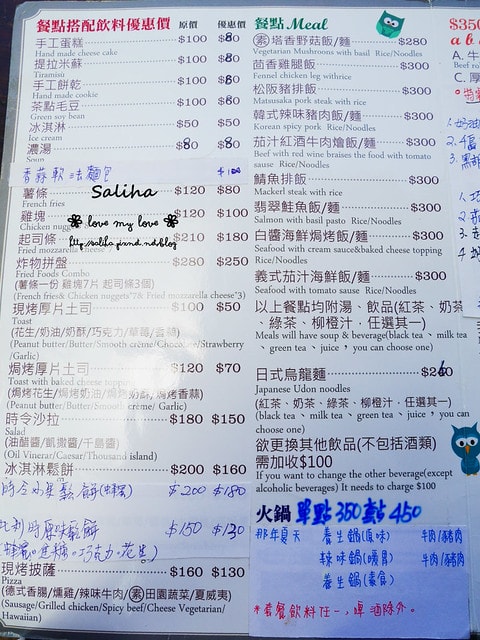 餐點搭配飲料優惠價 原價 優惠價
手工蛋糕 $100 $80
Hand made cheese cake
提拉米蘇 $100 $80
Tiramisu
手工餅乾 $100 $80
Hand made cookie
茶點毛豆 $100 $60
Green soy bean
冰淇淋 $50 $50
Ice cream
濃湯 $80 $80
Soup
香蒜軟法麵包 $100
薯條 $120 $80
French fries
雞塊 $120 $100
Chicken nuggets
起司條 $210 $180
Fried mozzarella cheese
炸物拼盤 $280 $250
Fried Foods Combo
(薯條一份 雞塊7片 起司條3個)
(French fries& Chicken nuggets*7& Fried mozzarella cheese*3)
現烤厚片土司 $100 $50
Toast
(花生/奶油/奶酥/巧克力/草莓/香蒜)
(Peanut butter/Butter/Smooth crème/Chocolate/Strawberry
/Garlic)
焗烤厚片土司 $120 $70
Toast with baked cheese topping
(焗烤花生/焗烤奶油/焗烤奶酥/焗烤香蒜)
(Peanut butter/Butter/Smooth crème/ Garlic)
時令沙拉 $180 $150
Salad
(油醋醬/凱撒醬/千島醬)
(Oil Vinerar/Caesar/Thousand island)
冰淇淋鬆餅 $200 $160
時令水果鬆餅(蜂蜜) $200 $180
比利時原味鬆餅 $150 $130
(蜂蜜。焦糖。巧克力。花生)
現烤披薩 $160 $130
Pizza
(德式香腸/燻雞/辣味牛肉/素田園蔬菜/夏威夷)
(Sausage/Grilled chicken/Spicy beef/Cheese Vegetarian/
Hawaiian)
Saliha
love my love
http://saliha.pixnet.net/blog
餐點 Meal
素塔香野菇飯/麵 $280
Vegetarian Mushrooms with basil Rice/Noodles
茴香雞腿飯 $300
Fennel chicken leg withrice
松阪豬排飯 $300
Matsusaka pork steak with rice
韓式辣味豬肉飯/麵 $300
Korean spicy pork Rice/Noodles
茄汁紅酒牛肉燴飯/麵 $300
Beef with red wine braises the food with tomato
sause Rice/Noodles
鯖魚排飯 $300
Mackerl steak with rice
翡翠鮭魚飯/麵 $300
Salmon with basil pasto Rice/Noodles
白醬海鮮焗烤飯/麵 $300
Seafood with cream sauce&baked cheese topping
Rice/Noodles
義式茄汁海鮮飯/麵 $300
Seafood with tomato sause Rice/Noodles
以上餐點均附湯、飲品(紅茶、奶茶
、綠茶、柳橙汁，任選其一)
Meals will have soup & beverage(black tea 、milk tea
、green tea 、juice，you can choose one)
日式烏龍麵 $260
Japanese Udon noodles
(紅茶、奶茶、綠茶、柳橙汁，任選其一)
(black tea 、milk tea 、green tea 、juice，you can
choose one)
欲更換其他飲品(不包括酒類)
需加收$100
If you want to change the other beverage(except
alcoholic beverages) It needs to charge $100
火鍋 單點350 套餐450
那年夏天 養生鍋(原味) 牛肉/豬肉
辣味鍋(暖胃) 牛肉/豬肉
養生鍋(素食)
*套餐飲料任一，啤酒除外。
$350
a b
A. 牛
Beef ro
C. 厚